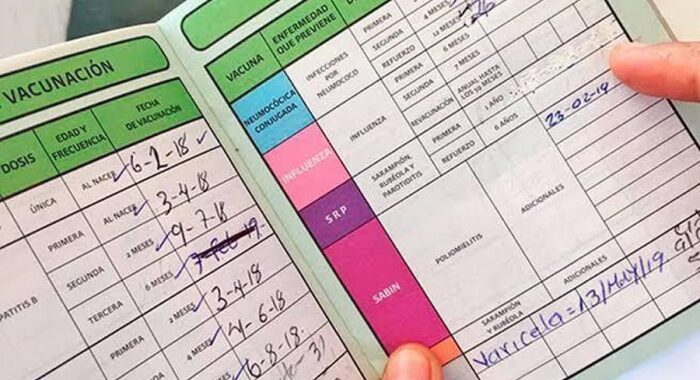 VACUNACIÓN
DOSIS
EDAD Y FRECUENCIA
FECHA DE VACUNACIÓN
ÚNICA
AL NACER
6-2-18
PRIMERA
AL NACER
3-4-18
SEGUNDA
2 MESES
9-7-18
TERCERA
6 MESES
PRIMERA
2 MESES
3-4-18
4 MESES
4-6-18
6-8-18
VACUNA
ENFERMEDAD QUE PREVIENE
NEUMOCÓCICA CONJUGADA
INFECCIONES POR NEUMOCOCO
PRIMERA
SEGUNDA
4 MESES
REFUERZO
12 MESES
INFLUENZA
INFLUENZA
PRIMERA
6 MESES
SEGUNDA
7 MESES
REVACUNACIÓN
ANUAL HASTA LOS 59 MESES
SRP
SARAMPIÓN, RUBÉOLA Y PAROTIDITIS
PRIMERA
1 AÑO
23-02-19
REFUERZO
6 AÑOS
SABIN
POLIOMIELITIS
ADICIONALES
SARAMPIÓN Y RUBÉOLA
ADICIONALES
Varicela=13/May/19